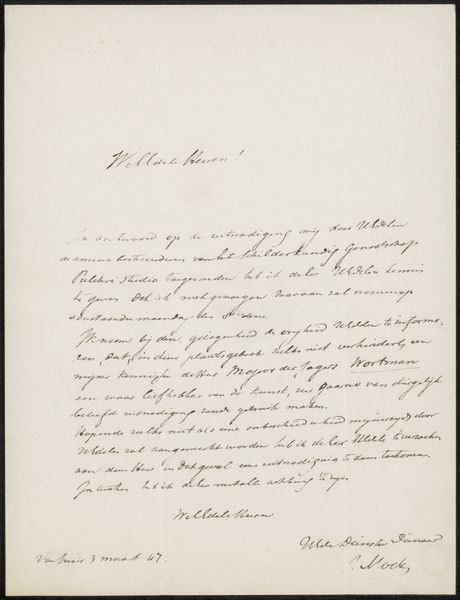 WelEdele Heeren!
In antwoord op de uitnoodiging mij door UEdelen
namens bestuurders van het Schilderkundig Genootschap
Pulchri Studio toegezonden heb ik de Eer UEdelen kennis
te geven dat ik met genoegen daaraan zal
maandag den
Ik neem bij deze gelegenheid de vrijheid UEdelen te informe-
ren, dat, indien plaatsgebrek zulks niet verhinderde, een
mijner kennissen de Heer Majoor der Jagers Wortman
een waar liefhebber van de kunst, zeer gaarne van dergelijk
beleefd uitnodiging zoude gebruik maken.
Hopende zulks niet als eene onbescheidenheid mijnerzijds door
UEdelen zal aangemerkt worden heb ik de Eer UEdele te verzoeken
aan dien Heer in dat geval een uitnodiging te doen toekomen.
heb ik de Eer met alle achting te zijn
WelEdele Heeren
UEd. Dienstw. Dienaar
3 maart 47.